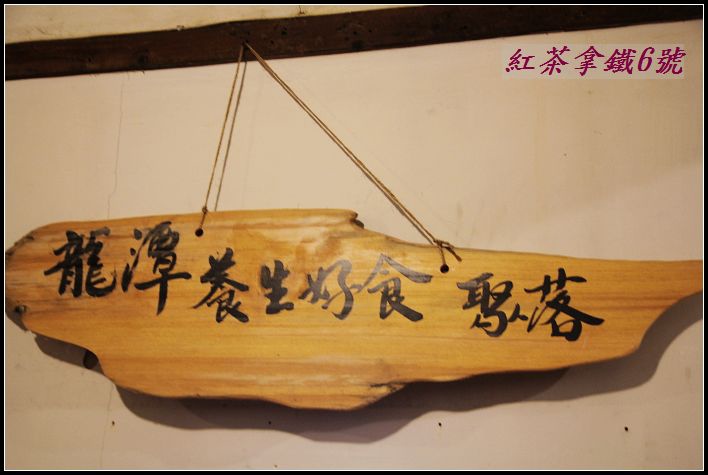 紅茶拿鐵6號
龍潭養生好食 聚落